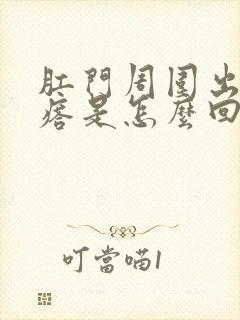 肛門周圍出
痞是怎麼回
叮當喵1